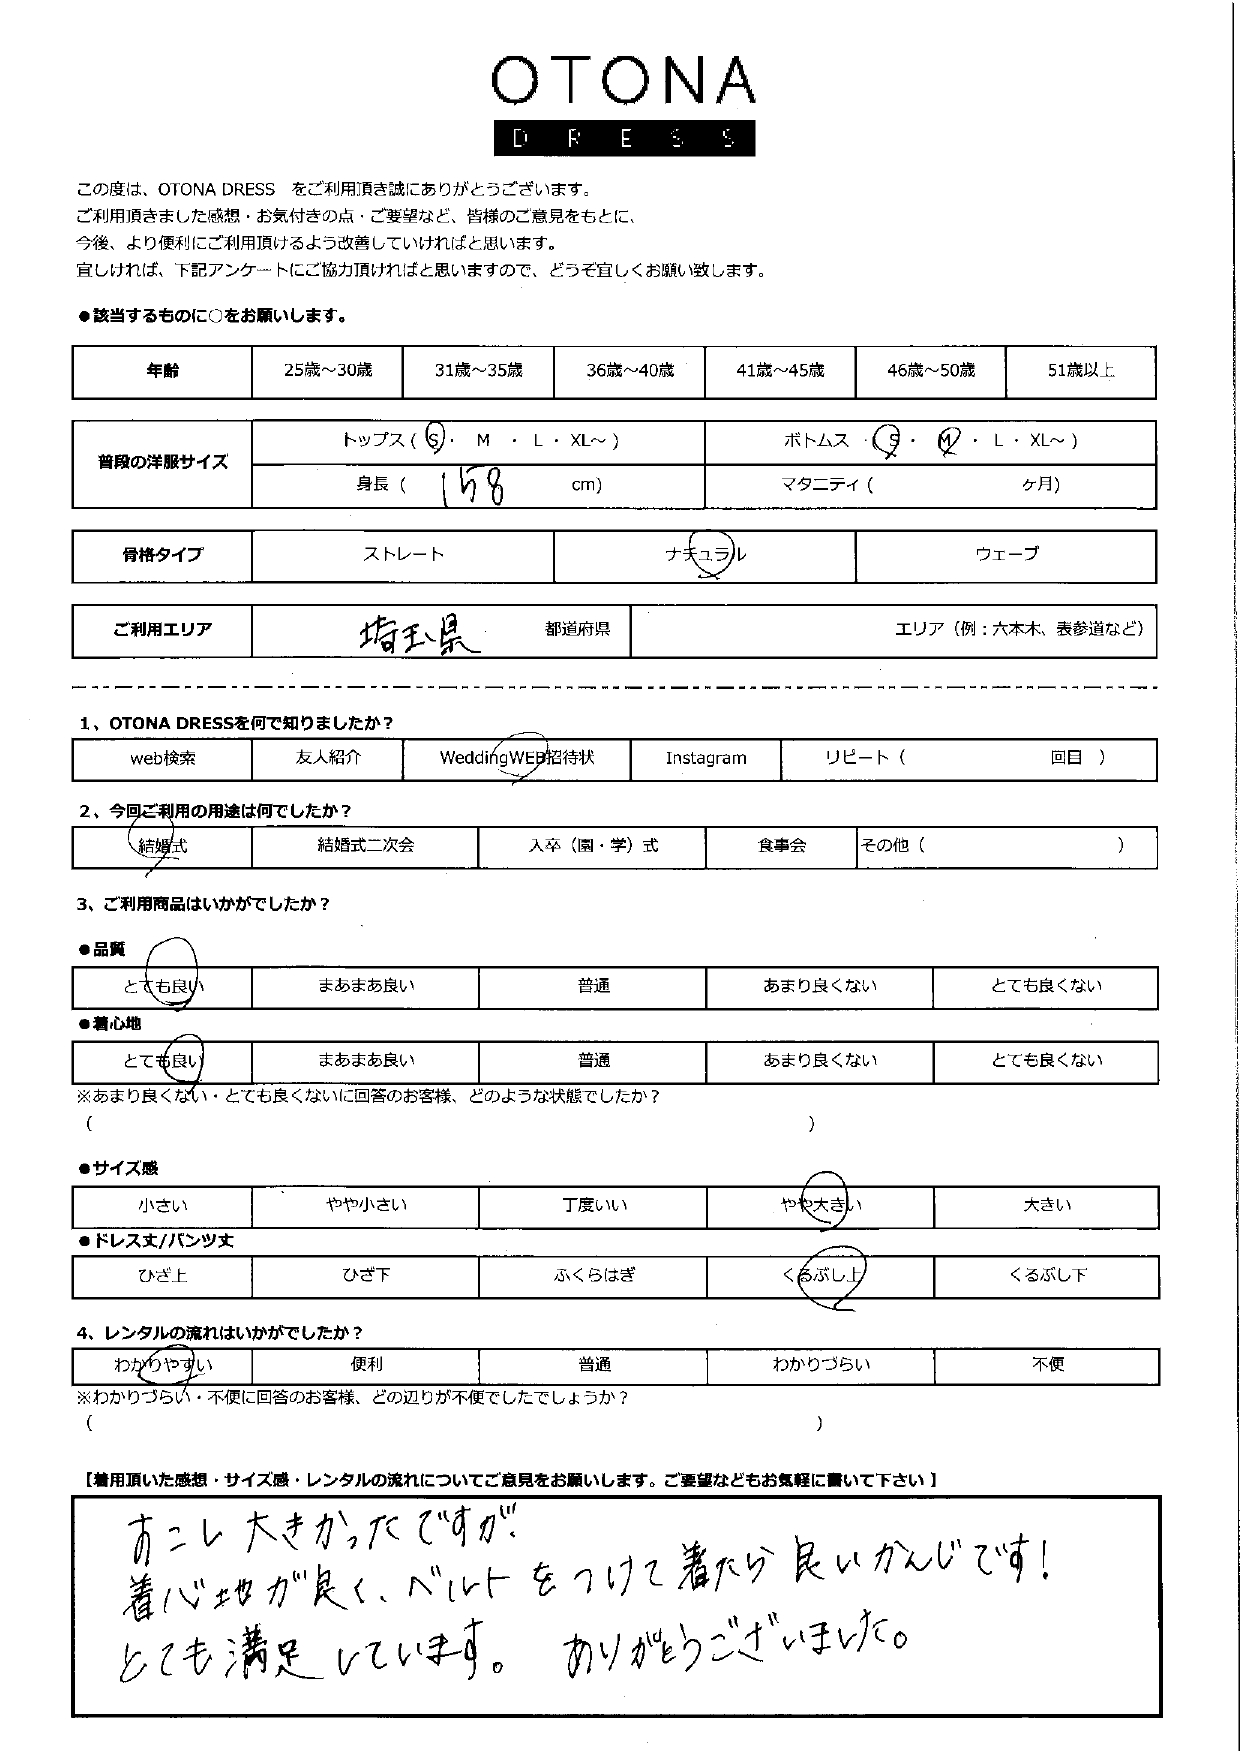 OTONA
DRESS
この度は、OTONA DRESS をご利用頂き誠にありがとうございます。
ご利用頂きました感想・お気付きの点・ご要望など、皆様のご意見をもとに、
今後、より便利にご利用頂けるよう改善していければと思います。
宜しければ、下記アンケートにご協力頂ければと思いますので、どうぞ宜しくお願い致します。
●該当するものに○をお願いします。
年齢 25歳～30歳 31歳～35歳 36歳～40歳 41歳～45歳 46歳～50歳 51歳以上
普段の洋服サイズ
トップス ( S ・ M ・ L ・ XL～ ) ボトムス ・ S ・ M ・ L ・ XL～ )
身長 ( 158 cm) マタニティ ( ケ月)
骨格タイプ ストレート ナチュラル ウェーブ
ご利用エリア 埼玉県 都道府県 エリア（例：六本木、表参道など）
1、OTONA DRESSを何で知りましたか？
web検索 友人紹介 WeddingWEB招待状 Instagram リピート（ 回目 ）
2、今回ご利用の用途は何でしたか？
結婚式 結婚式二次会 入卒（園・学）式 食事会 その他（ ）
3、ご利用商品はいかがでしたか？
●品質
とても良い まあまあ良い 普通 あまり良くない とても良くない
●着心地
とても良い まあまあ良い 普通 あまり良くない とても良くない
※あまり良くない・とても良くないに回答のお客様、どのような状態でしたか？
( )
●サイズ感
小さい やや小さい 丁度いい やや大きい 大きい
●ドレス丈/パンツ丈
ひざ上 ひざ下 ふくらはぎ くるぶし上 くるぶし下
4、レンタルの流れはいかがでしたか？
わかりやすい 便利 普通 わかりづらい 不便
※わかりづらい・不便に回答のお客様、どの辺りが不便でしたでしょうか？
( )
【着用頂いた感想・サイズ感・レンタルの流れについてご意見をお願いします。ご要望などもお気軽に書いて下さい】
すこし大きかったですが、
着心地が良く、ベルトをつけて着たら良いかんじです！
とても満足しています。 ありがとうございました。